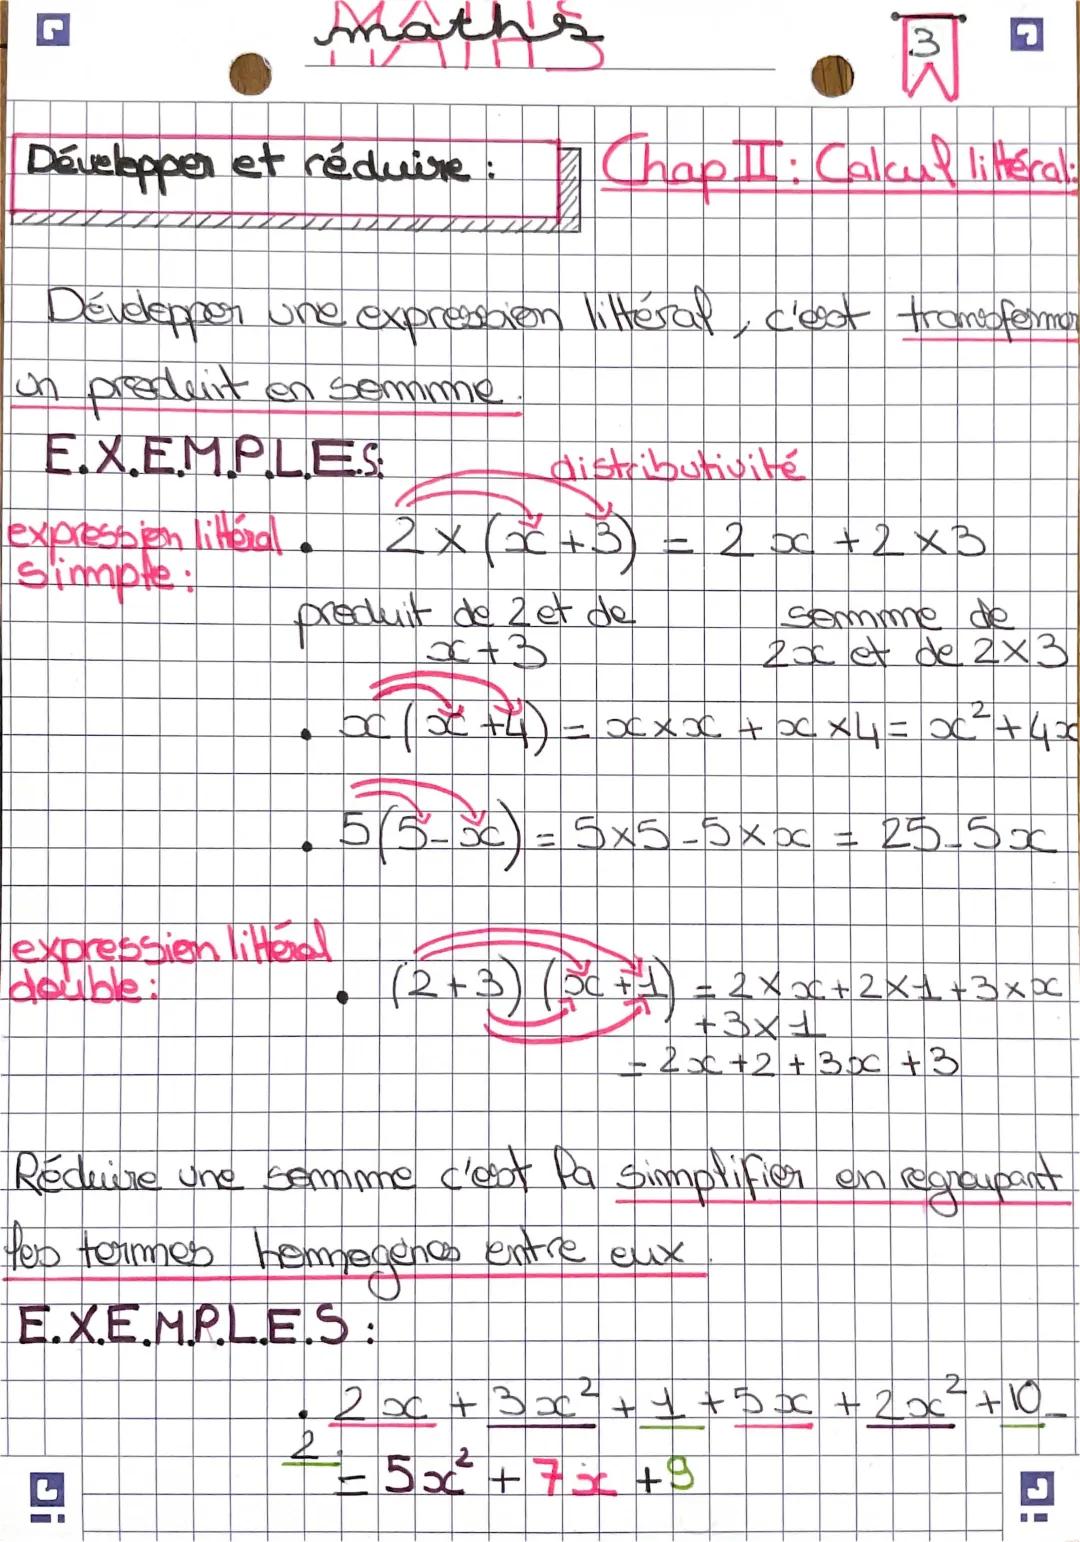 maths
MATHS
3
Développer et réduire :
Chap II : Calcul littéral :
Développer une expression littéral, c'est transformer
un produit en somme.
E.X.E.M.P.L.E.S:
distributivité
expression littéral
simple :
• 2 × (x + 3) = 2x + 2 × 3
produit de 2 et de
x + 3
somme de
2x et de 2×3
• x (x + 4) = x × x + x × 4 = x² + 4x
• 5(5 - x) = 5×5 - 5×x = 25 - 5x
expression littéral
double :
• (2 + 3) (x + 1) = 2 × x + 2 × 1 + 3 × x
+ 3 × 1
= 2x + 2 + 3x + 3
Réduire une somme c'est la simplifier en regroupant
les termes homogènes entre eux.
E.X.E.M.P.L.E.S :
• 2x + 3x² + 1 + 5x + 2x² + 10 -
2
= 5x² + 7x + 9